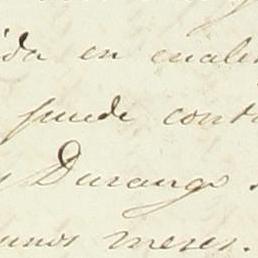 ida en cuale
puede conta
y Durango
unos meses.